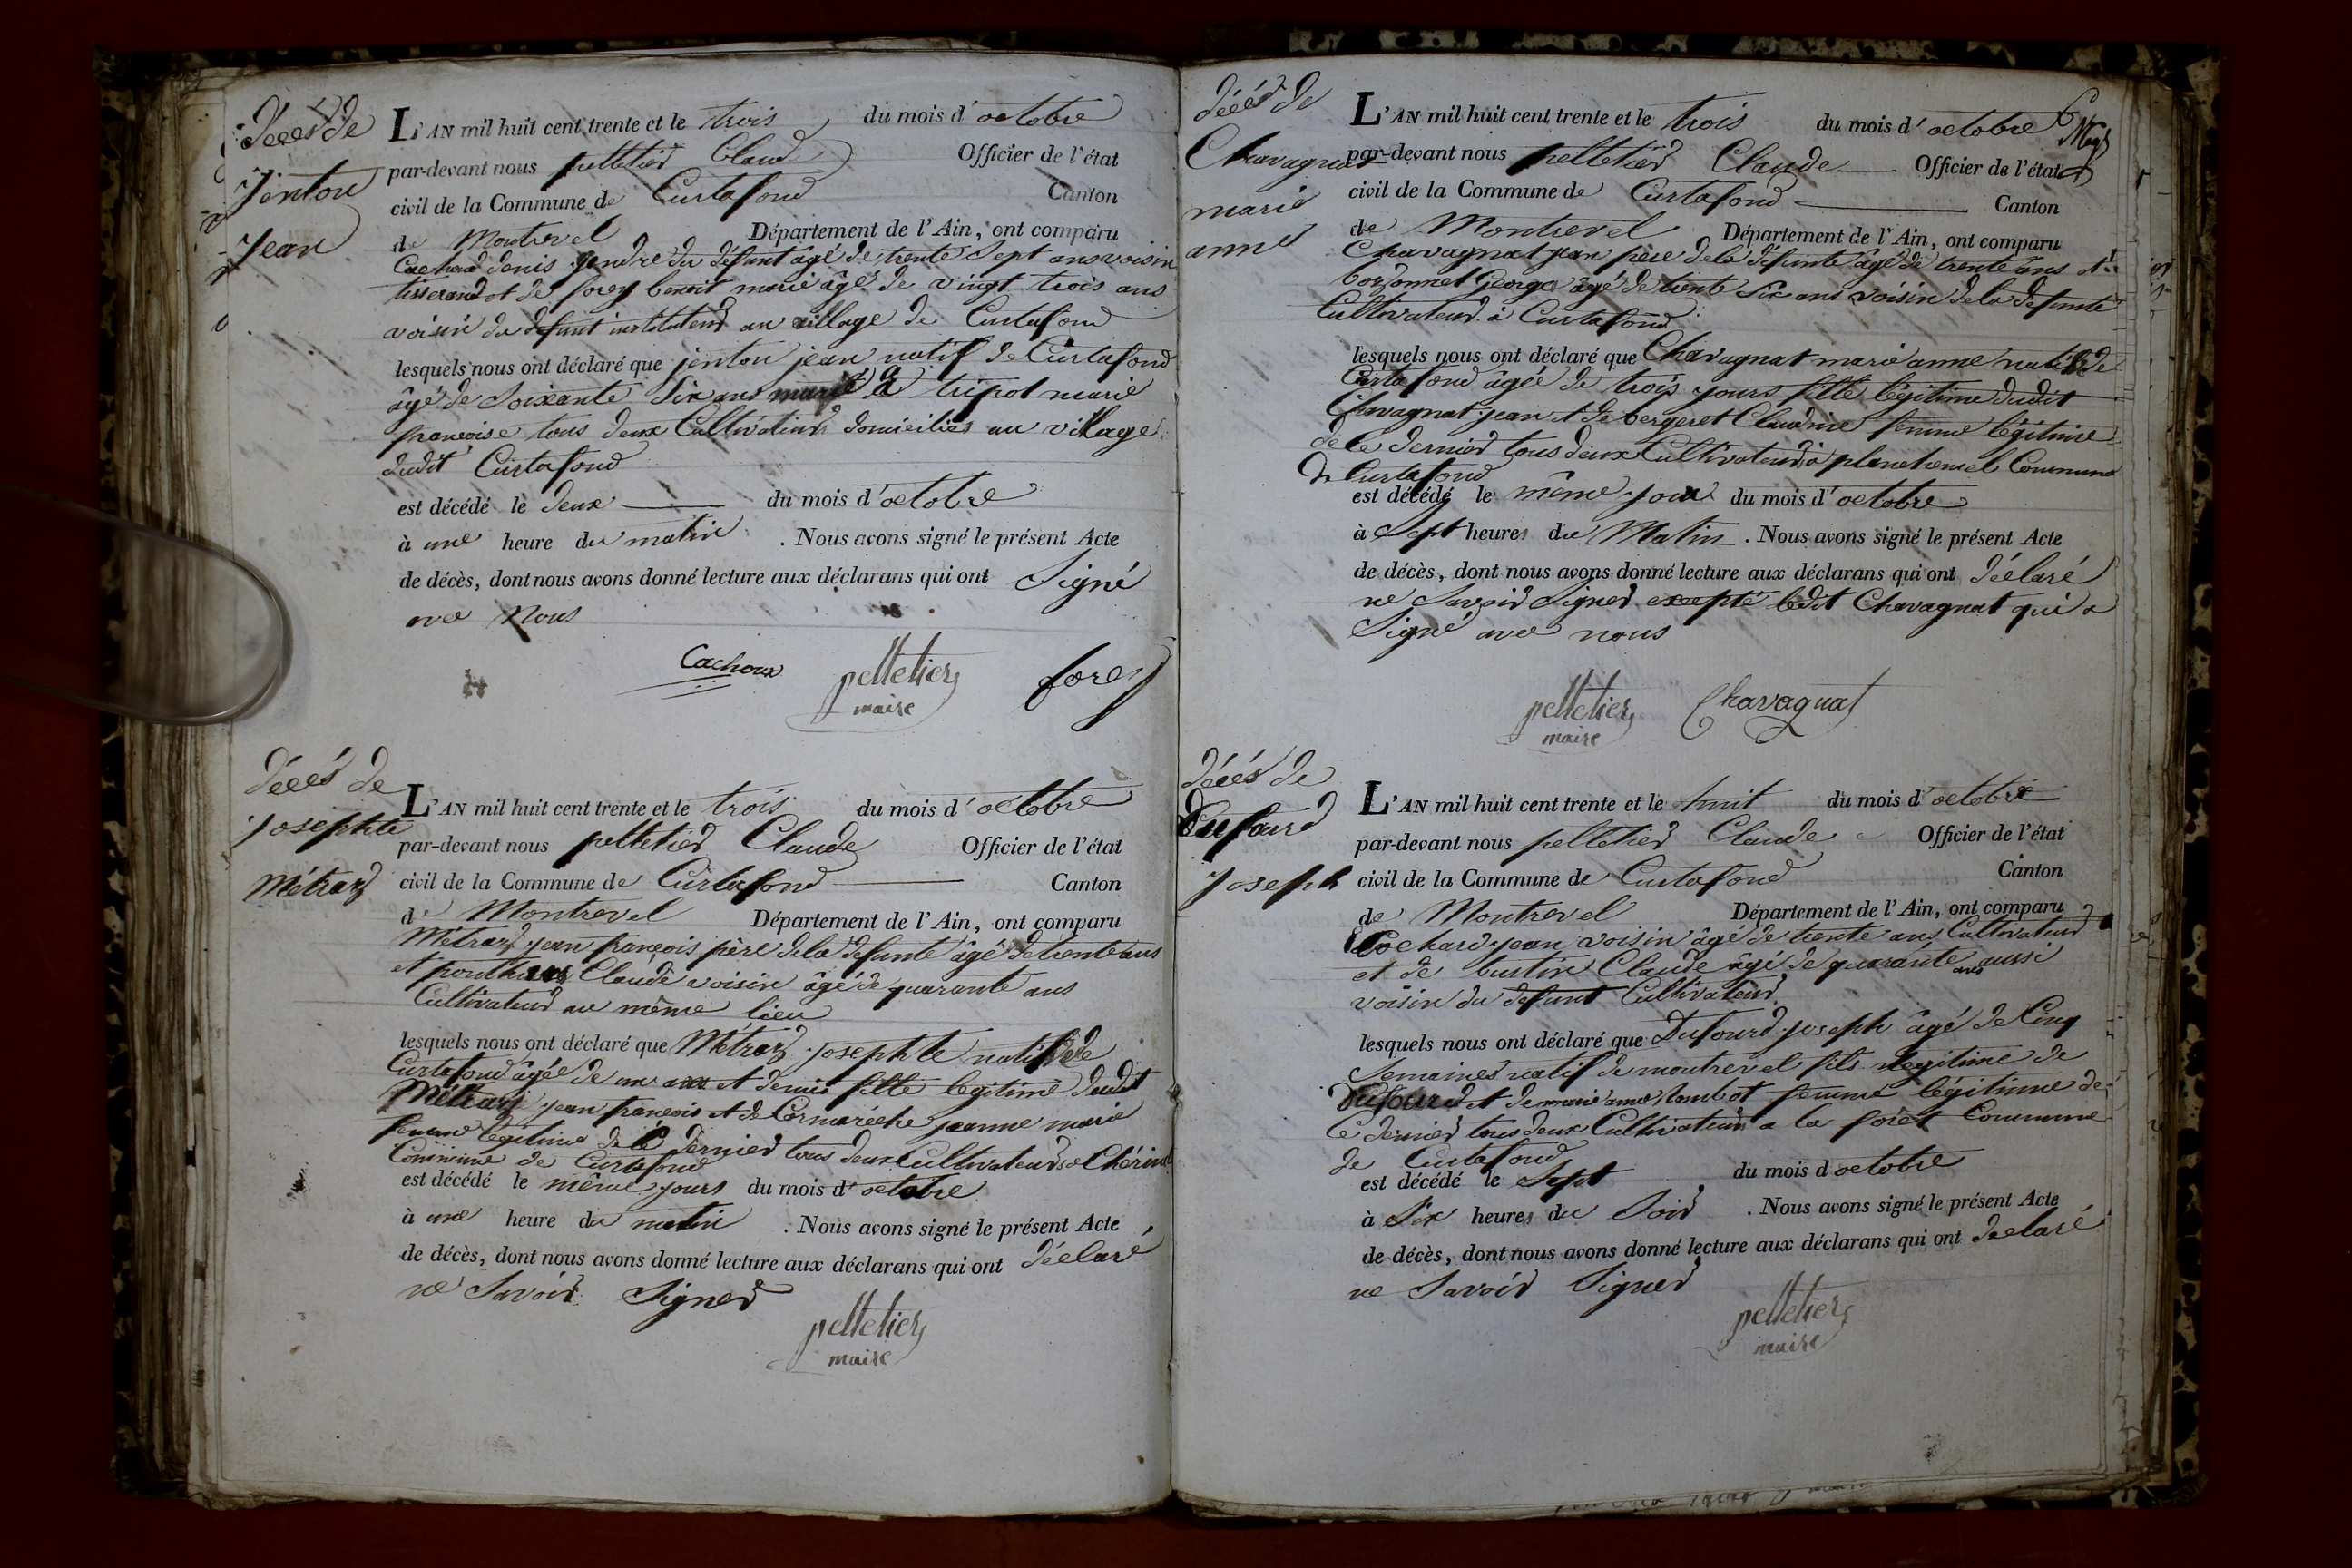 décés de
Jenton
Jean
L'AN mil huit cent trente et le trois du mois d'octobre
par-devant nous pelletier Claude Officier de l'état
civil de la Commune de Curtafond Canton
de Montrevel Département de l'Ain, ont comparu
Cachoud denis gendre du défunt âgé de trente Sept ans voisin
tisserand et de forey benoit marié âgé de vingt trois ans
voisin du defunt instituteur au village de Curtafond
lesquels nous ont déclaré que jenton jean natif de Curtafond
âgé de Soixante Six ans marié à tripot marie
francoise tous deux Cultivateurs domiciliés au village
dudit Curtafond
est décédé le deux du mois d'octobre
à une heure du matin . Nous avons signé le présent Acte
de décès, dont nous avons donné lecture aux déclarans qui ont Signé
avec Nous
Cachoux pelletier forey
maire
décés de
Josephte
Métraz
L'AN mil huit cent trente et le trois du mois d'octobre
par-devant nous pelletier Claude Officier de l'état
civil de la Commune de Curtafond Canton
de Montrevel Département de l'Ain, ont comparu
Métraz jean françois père dela défunte âgé de trente ans
et Claude voisin âgé de quarante ans
Cultivateur au même lieu
lesquels nous ont déclaré que Métraz josephte native de
Curtafond âgée de un ans et demis fille legitime dudit
Métraz jean françois et de Cormarèche jeanne marie
femme légitime de le dernier tous deux Cultivateurs a
Commune de Curtafond
est décédé le même jours du mois d'octobre
à une heure du matin . Nous avons signé le présent Acte
de décès, dont nous avons donné lecture aux déclarans qui ont déclaré
ne Savoir Signer
pelletier
maire
décés de
Chavagnat
marie
anne
L'AN mil huit cent trente et le trois du mois d'octobre 6
par-devant nous pelletier Claude Officier de l'état
civil de la Commune de Curtafond Canton
de Montrevel Département de l'Ain, ont comparu
Chavagnat jean père dela défunte âgé de trente ans et
borjonnet George âgé de trente Six ans voisin dela defunte
Cultivateur à Curtafond
lesquels nous ont déclaré que Chavagnat marie anne native de
Curtafond âgée de trois jours fille légitime dudit
Chavagnat jean et de bergeret Claudine femme légitime
de le dernier tous deux Cultivateur à Commune
de Curtafond
est décédé le même jour du mois d'octobre
à Sept heures du Matin . Nous avons signé le présent Acte
de décès, dont nous avons donné lecture aux déclarans qui ont déclaré
ne Savoir Signer excepté ledit Chavagnat qui a
Signé avec nous
pelletier Chavagnat
maire
décés de
Dufourd
Joseph
L'AN mil huit cent trente et le huit du mois d'octobre
par-devant nous pelletier Claude Officier de l'état
civil de la Commune de Curtafond Canton
de Montrevel Département de l'Ain, ont comparu
Cochard jean voisin âgé de trente ans Cultivateur
et de bustin Claude âgé de quarante ans aussi
voisin du defunt Cultivateur
lesquels nous ont déclaré que Dufourd joseph âgé de Cinq
Semaines natif de montrevel fils legitime de
Dufourd et de marie anne femme légitime de
le dernier tous deux Cultivateur a la foret Commune
de Curtafond
est décédé le Sept du mois d'octobre
à Six heures du Soir . Nous avons signé le présent Acte
de décès, dont nous avons donné lecture aux déclarans qui ont déclaré
ne Savoir Signer
pelletier
maire